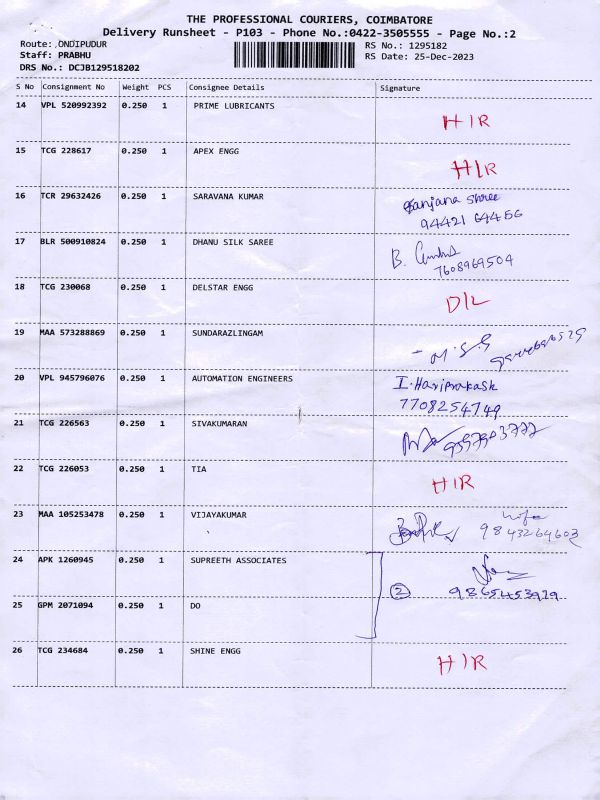 THE PROFESSIONAL COURIERS, COIMBATORE
Delivery Runsheet - P103 - Phone No.:0422-3505555 - Page No.:2
Route: ONDIPUDUR RS No.: 1295182
Staff: PRABHU RS Date: 25-Dec-2023
DRS No.: DCJB129518202
S No Consignment No Weight PCS Consignee Details Signature
14 VPL 520992392 0.250 1 PRIME LUBRICANTS
H/R
15 TCG 228617 0.250 1 APEX ENGG
H/R
16 TCR 29632426 0.250 1 SARAVANA KUMAR
Sanjana Shree
94421 64456
17 BLR 500910824 0.250 1 DHANU SILK SAREE
B.
7608969504
18 TCG 230068 0.250 1 DELSTAR ENGG
D/L
19 MAA 573288869 0.250 1 SUNDARAZLINGAM
- M.S.S
20 VPL 945796076 0.250 1 AUTOMATION ENGINEERS
I.Hariprakash
7708254749
21 TCG 226563 0.250 1 SIVAKUMARAN
22 TCG 226053 0.250 1 TIA
H/R
23 MAA 105253478 0.250 1 VIJAYAKUMAR
wife
9843264603
24 APK 1260945 0.250 1 SUPREETH ASSOCIATES
2 9865453929
25 GPM 2071094 0.250 1 DO
26 TCG 234684 0.250 1 SHINE ENGG
H/R